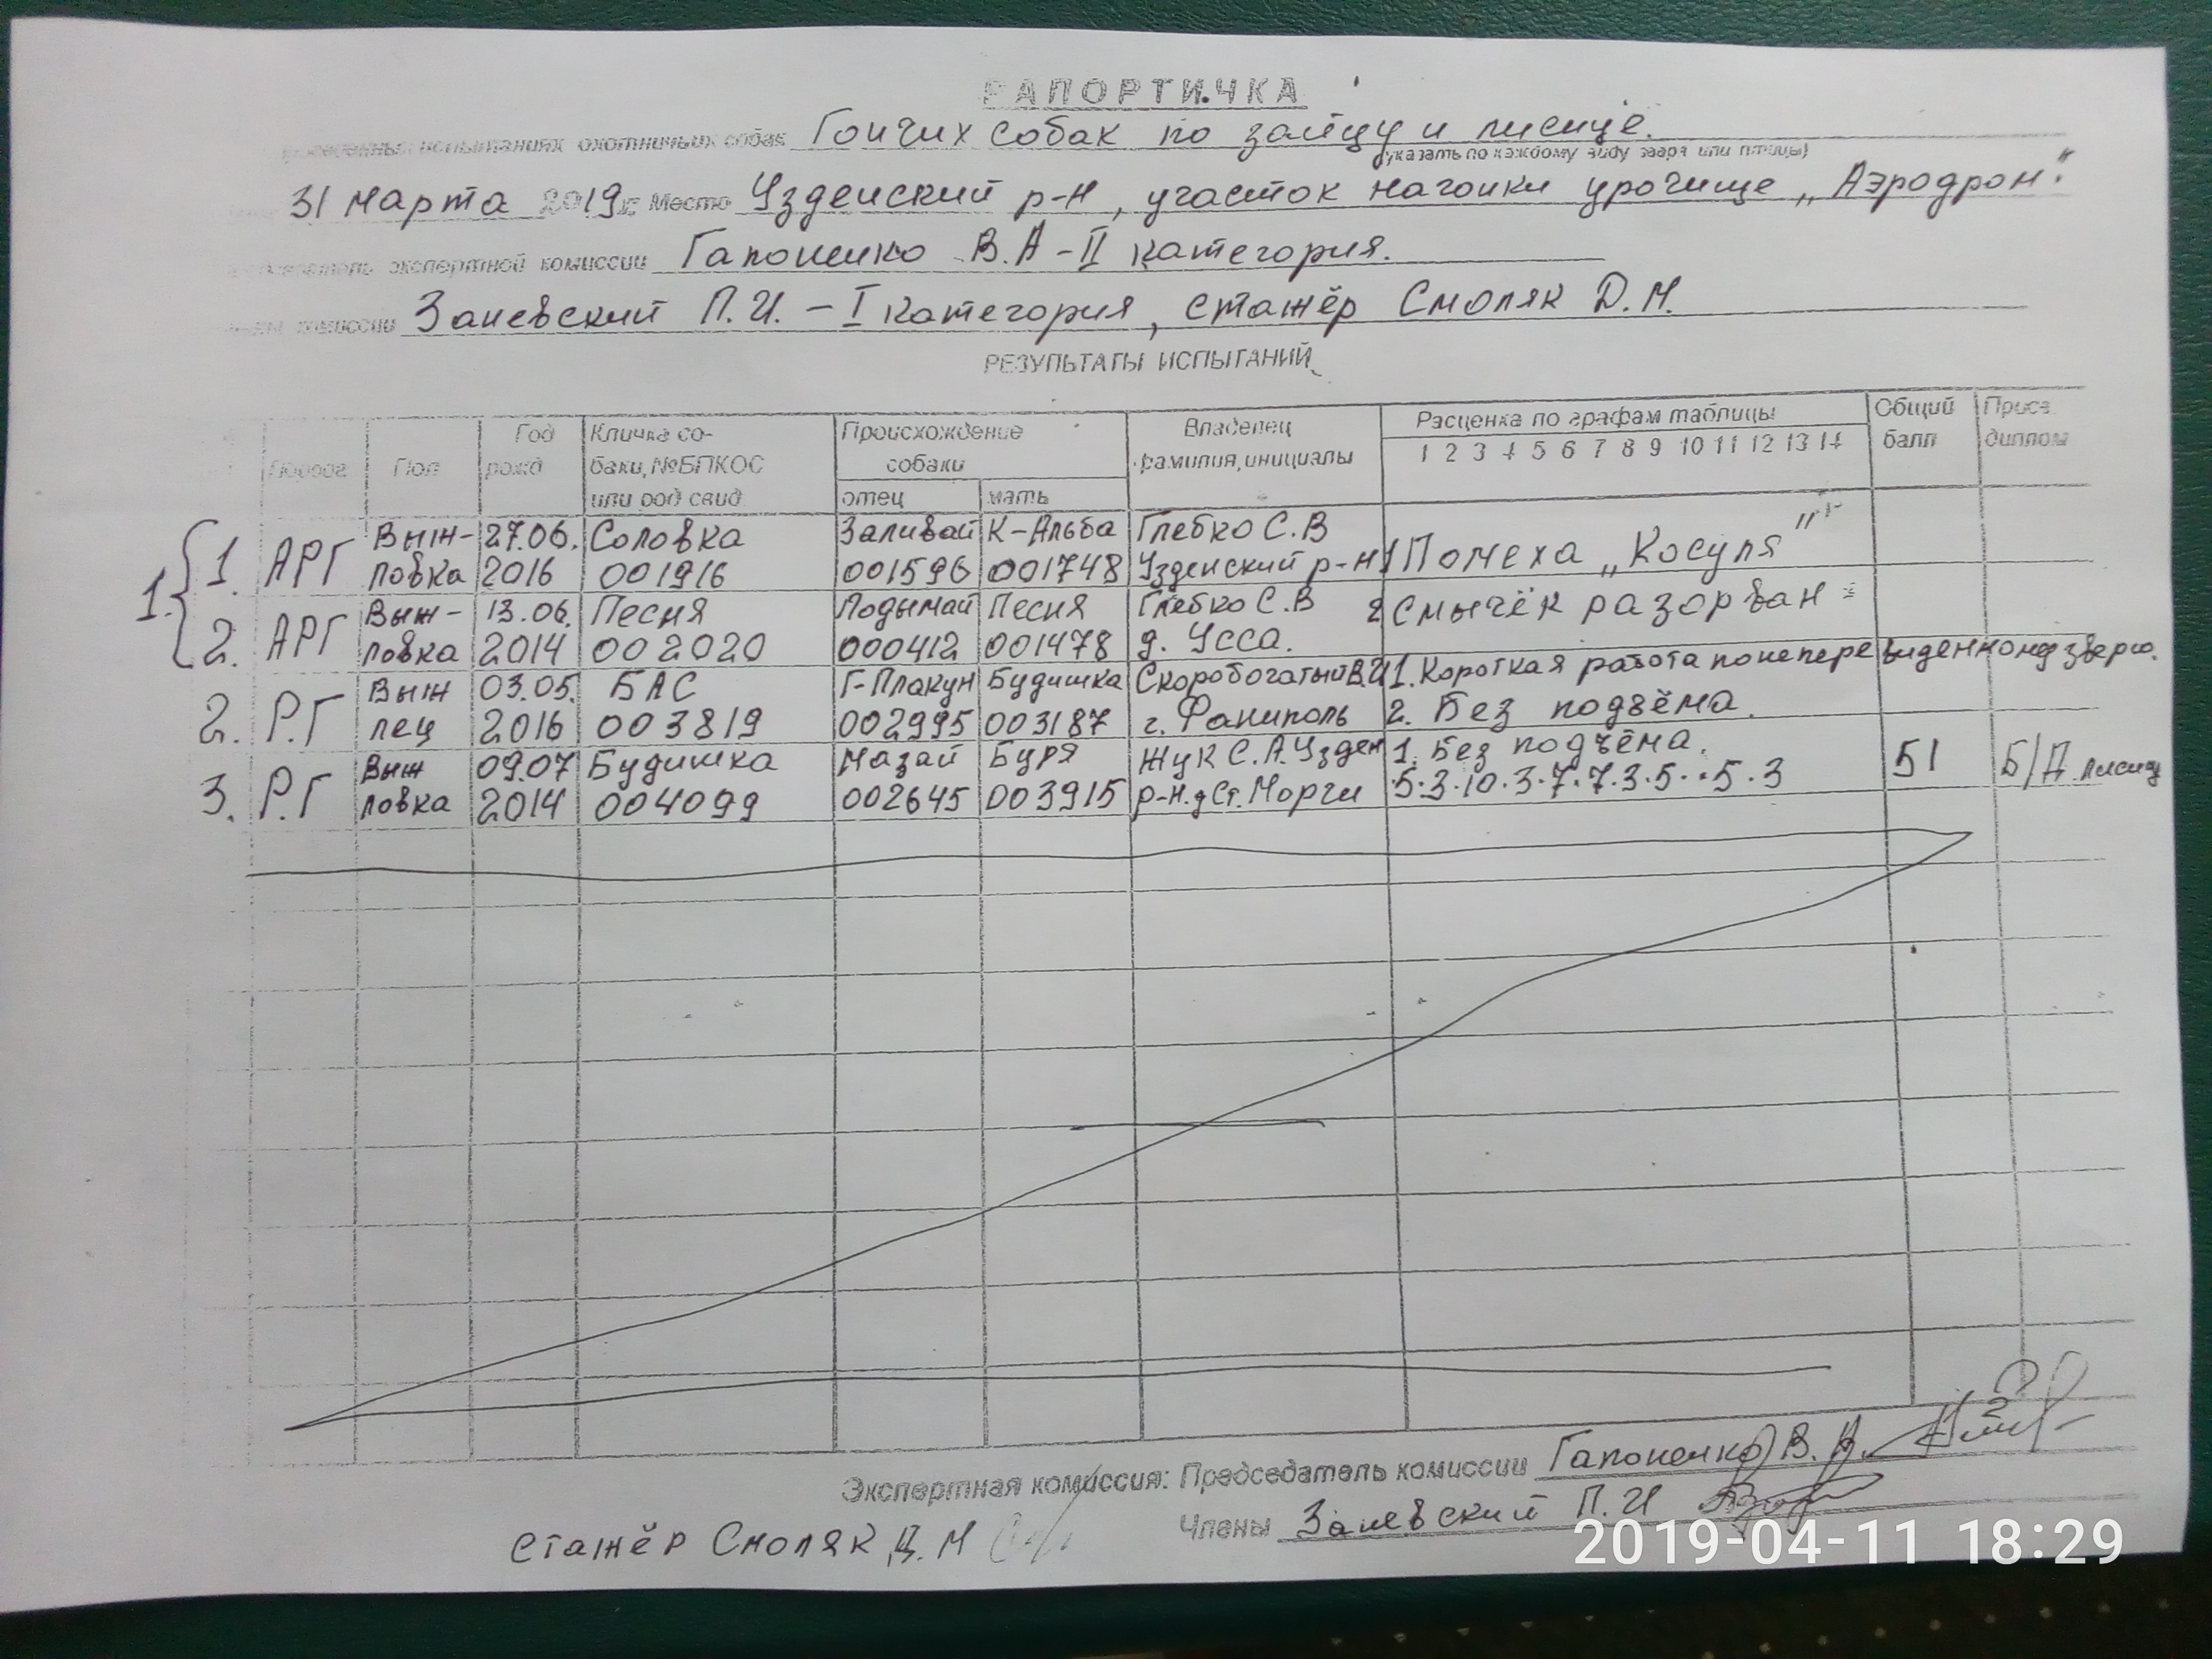 РАПОРТИЧКА
испытаниях охотничьих собак Гончих собак по зайцу и лисице.
(указать по каждому виду зверя или птицы)
31 Марта 2019г. Место Узденский р-н, участок нагонки урочище „Аэродром".
экспертной комиссии Гапоненко В.А - II категория.
комиссии Заневский П.И. - I категория, стажёр Смоляк Д.М.
РЕЗУЛЬТАТЫ ИСПЫТАНИЙ
Порода Пол Год рожд Кличка со-баки, №БПКОС или род свид. Происхождение собаки отец мать Владелец фамилия, инициалы Расценка по графам таблицы 1 2 3 4 5 6 7 8 9 10 11 12 13 14 Общий балл Присв. диплом
1. 1. АРГ Выж- 27.06. Соловка Заливай К-Альба Глебко С.В
ловка 2016 001916 001596 001748 Узденский р-н 1 Помеха „Косуля"
2. АРГ Выж- 13.06. Песня Подымай Песня Глебко С.В 2 Смычёк разорван
ловка 2014 002020 000412 001478 д. Усса.
2. Р.Г Выж 03.05. БАС Г-Плакун Будишка Скоробогатый В.И 1. Короткая работа по не перевиденному зверю.
лец 2016 003819 002995 003187 г. Фаниполь 2. Без подъёма.
3. Р.Г Выж 09.07 Будишка Мазай Буря Жук С.А. Узден 1. Без подъёма. 51 Б/Д лисица
ловка 2014 004099 002645 003915 р-н. д Ст. Морги 5.3.10.3.7.7.3.5..5.3
Экспертная комиссия: Председатель комиссии Гапоненко В.А.
Члены Заневский П.И
стажёр Смоляк Д.М
2019-04-11 18:29